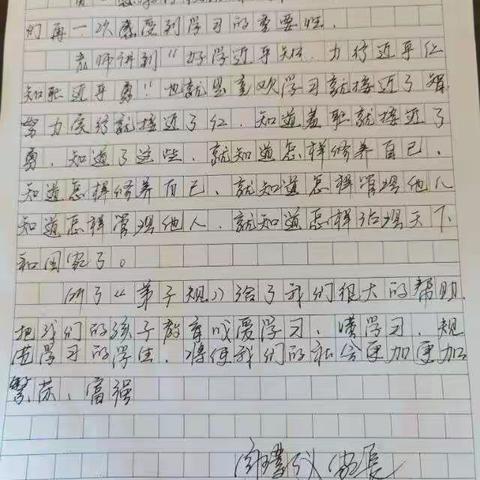 们再一次感受到学习的重要性.
老师讲到"好学近乎知.力行近乎仁
知耻近乎勇!"也就是喜欢学习就接近了智
努力实行就接近了仁.知道羞耻就接近了
勇.知道了这些.就知道怎样修养自己.
知道怎样修养自己.就知道怎样管理他人
知道怎样管理他人.就知道怎样治理天下
和国家了。
听了《弟子规》给了我们很大的帮助.
把我们的孩子教育成爱学习.懂学习.规
范学习的学生.将使我们的社会更加更加
繁荣、富强
家长